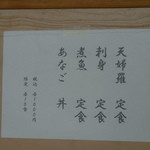 天婦羅 定食
刺身 定食
煮魚 定食
あなご 丼